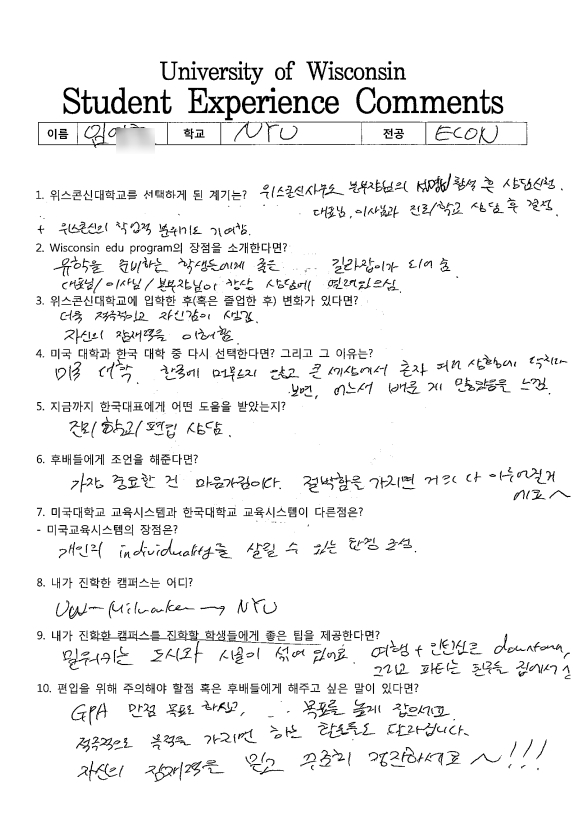 University of Wisconsin
Student Experience Comments
이름 김 학교 NYU 전공 ECON
1. 위스콘신대학교를 선택하게 된 계기는? 위스콘신사무소 본부장님의 설명회 참석 후 상담신청.
대표님, 이사님과 진로/학교 상담 후 결정.
+ 위스콘신의 학업적 분위기도 기여함.
2. Wisconsin edu program의 장점을 소개한다면?
유학을 준비하는 학생들에게 좋은 길라잡이가 되어 줌
대표님/이사님/본부장님이 항상 상담에
3. 위스콘신대학교에 입학한 후(혹은 졸업한 후) 변화가 있다면?
더욱 적극적이고 자신감이 생김.
자신의 잠재력을 이해함.
4. 미국 대학과 한국 대학 중 다시 선택한다면? 그리고 그 이유는?
미국 대학. 한국에 머무르지 않고 큰 세상에서 혼자 여러 상황에 닥치다
보면, 어느새 배운 게 많음을 느낌.
5. 지금까지 한국대표에게 어떤 도움을 받았는지?
진로/학교/편입 상담.
6. 후배들에게 조언을 해준다면?
가장 중요한 건 마음가짐이다. 절박함을 가지면 거의 다 이루어질거
에요~
7. 미국대학교 교육시스템과 한국대학교 교육시스템이 다른점은?
- 미국교육시스템의 장점은?
개인의 individuality를 살릴 수 있는 환경 조성.
8. 내가 진학한 캠퍼스는 어디?
UW-Milwaukee → NYU
9. 내가 진학한 캠퍼스를 진학할 학생들에게 좋은 팁을 제공한다면?
밀워키는 도시와 시골이 섞여 있어요. 여행 + 인턴십은 downtown,
그리고 파티는 친구들 집에서
10. 편입을 위해 주의해야 할점 혹은 후배들에게 해주고 싶은 말이 있다면?
GPA 만점 목표로 하시고, 목표를 높게 잡으세요.
적극적으로 목적을 가지면 하는 행동들도 달라집니다.
자신의 잠재력을 믿고 꾸준히 정진하세요~!!!